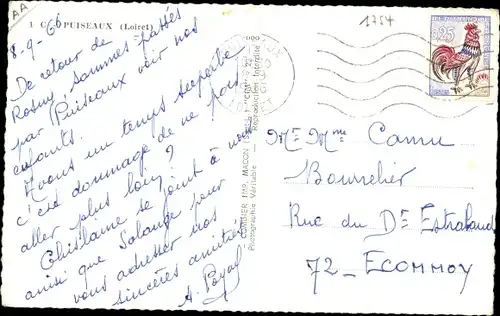 AA
1 C PUISEAUX (Loiret)
1754
8-9-66
0,25
De retour de
Rosny sommes passés
par Puiseaux voir nos
enfants.
Avons un temps superbe
c'est dommage de ne pas
aller plus loin ?
Ghislaine se joint à nous
ainsi que Solange pour
vous adresser nos
sincères amitiés
COMBIER IMP. MACON
Photographie Véritable - Reproduction Interdite
Mr Mme Camu
Bourrelier
Rue du Dr
72 - Ecommoy